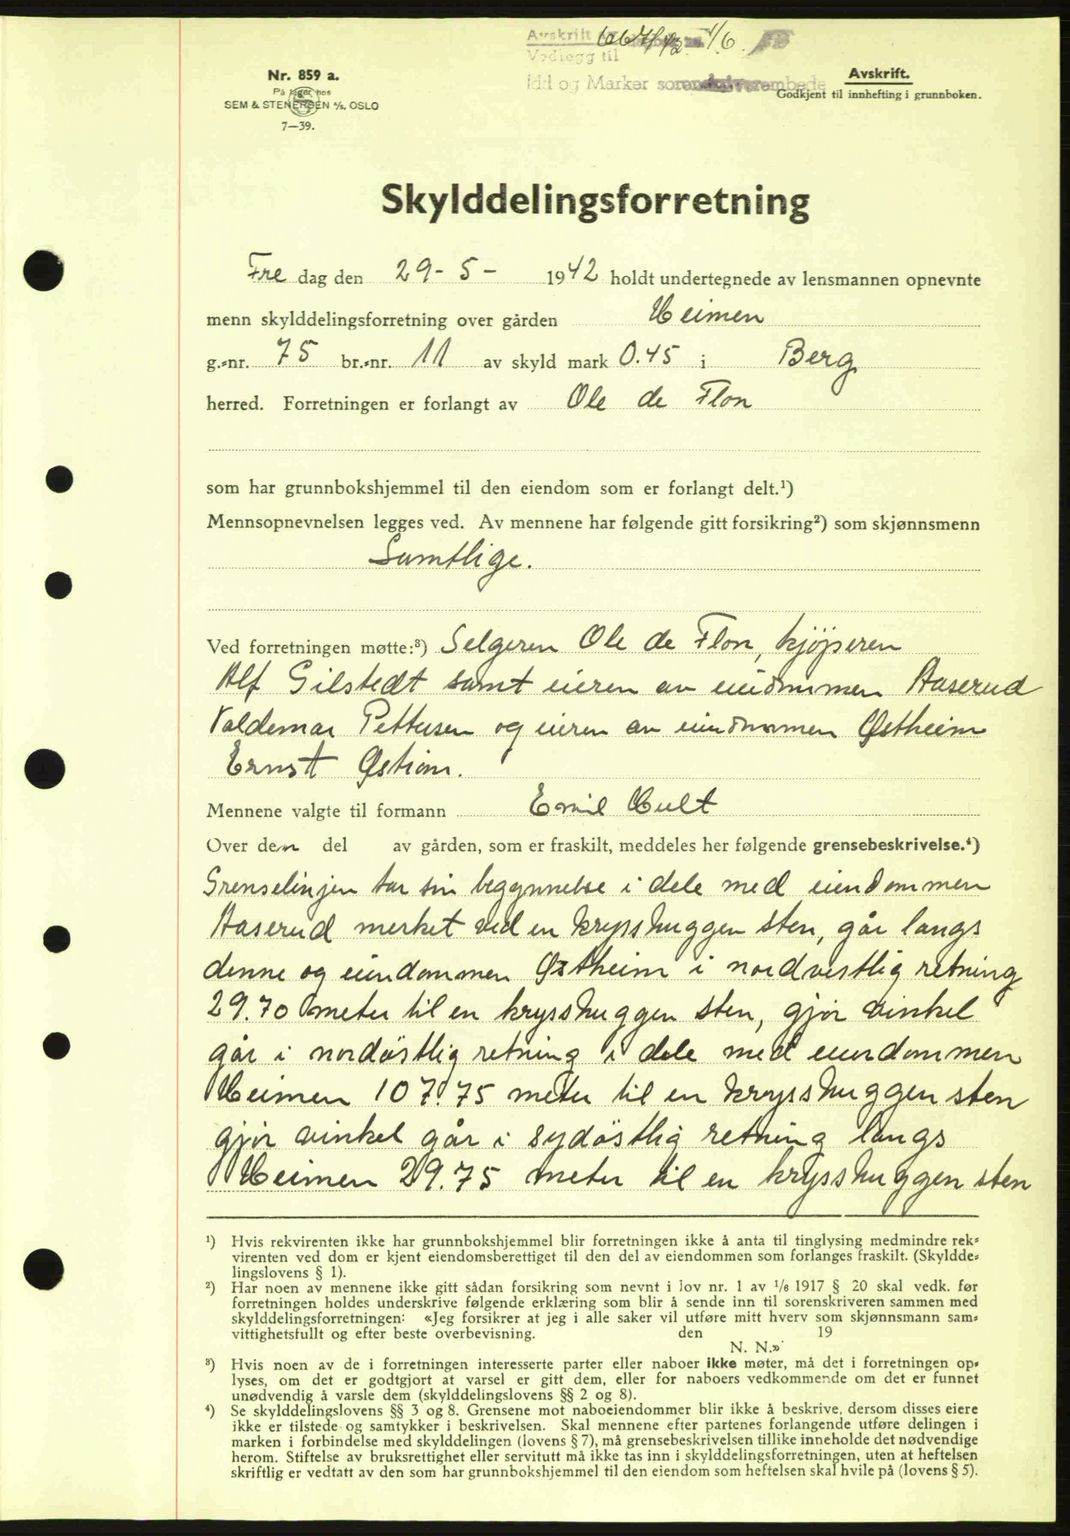 Avskrift 667/42 1/6
Vedlegg til
Idd og Marker sorenskriverembede
Nr. 859 a.
På lager hos
SEM & STENERSEN A/S, OSLO
7—39.
Avskrift.
Godkjent til innhefting i grunnboken.
Skylddelingsforretning
Fre dag den 29-5- 1942 holdt undertegnede av lensmannen opnevnte
menn skylddelingsforretning over gården Heimen
g.-nr. 75 br.-nr. 11 av skyld mark 0.45 i Berg
herred. Forretningen er forlangt av Ole de Flon
som har grunnbokshjemmel til den eiendom som er forlangt delt.¹)
Mennsopnevnelsen legges ved. Av mennene har følgende gitt forsikring²) som skjønnsmenn
Samtlige.
Ved forretningen møtte:³) Selgeren Ole de Flon, kjöperen
Alf Gilstedt samt eieren av eiendommen Aaserud
Valdemar Pettersen og eieren av eiendommen Østheim
Ernst Østiom.
Mennene valgte til formann Emil Hult
Over den del av gården, som er fraskilt, meddeles her følgende grensebeskrivelse.⁴)
Grenselinjen tar sin begynnelse i dele med eiendommen
Aaserud merket ved en krysshuggen sten, går langs
denne og eiendommen Østheim i nordvestlig retning
29.70 meter til en krysshuggen sten, gjör vinkel
går i nordöstlig retning i dele med eiendommen
Heimen 107.75 meter til en krysshuggen sten
gjör vinkel går i sydöstlig retning langs
Heimen 29.75 meter til en krysshuggen sten
¹) Hvis rekvirenten ikke har grunnbokshjemmel blir forretningen ikke å anta til tinglysing medmindre rek-
virenten ved dom er kjent eiendomsberettiget til den del av eiendommen som forlanges fraskilt. (Skyldde-
lingslovens § 1).
²) Har noen av mennene ikke gitt sådan forsikring som nevnt i lov nr. 1 av 1/6 1917 § 20 skal vedk. før
forretningen holdes underskrive følgende erklæring som blir å sende inn til sorenskriveren sammen med
skylddelingsforretningen: «Jeg forsikrer at jeg i alle saker vil utføre mitt hverv som skjønnsmann sam-
vittighetsfullt og efter beste overbevisning. den 19
N. N.»
³) Hvis noen av de i forretningen interesserte parter eller naboer ikke møter, må det i forretningen op-
lyses, om det er godtgjort at varsel er gitt dem, eller for naboers vedkommende om det er funnet
unødvendig å varsle dem (skylddelingslovens §§ 2 og 8).
⁴) Se skylddelingslovens §§ 3 og 8. Grensene mot naboeiendommer blir ikke å beskrive, dersom disses eiere
ikke er tilstede og samtykker i beskrivelsen. Skal mennene efter partenes forlangende utføre delingen i
marken i forbindelse med skylddelingen (lovens § 7), må grensebeskrivelsen tillike inneholde det nødvendige
herom. Stiftelse av bruksrettighet eller servitutt må ikke tas inn i skylddelingsforretningen, uten at heftelsen
skriftlig er vedtatt av den som har grunnbokshjemmel til den eiendom som heftelsen skal hvile på (lovens § 5).